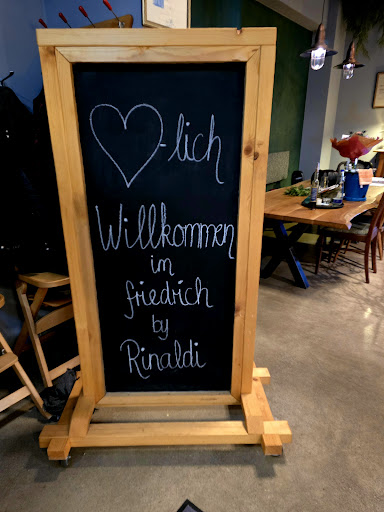 ♡-lich
Willkommen
im
friedrich
by
Rinaldi